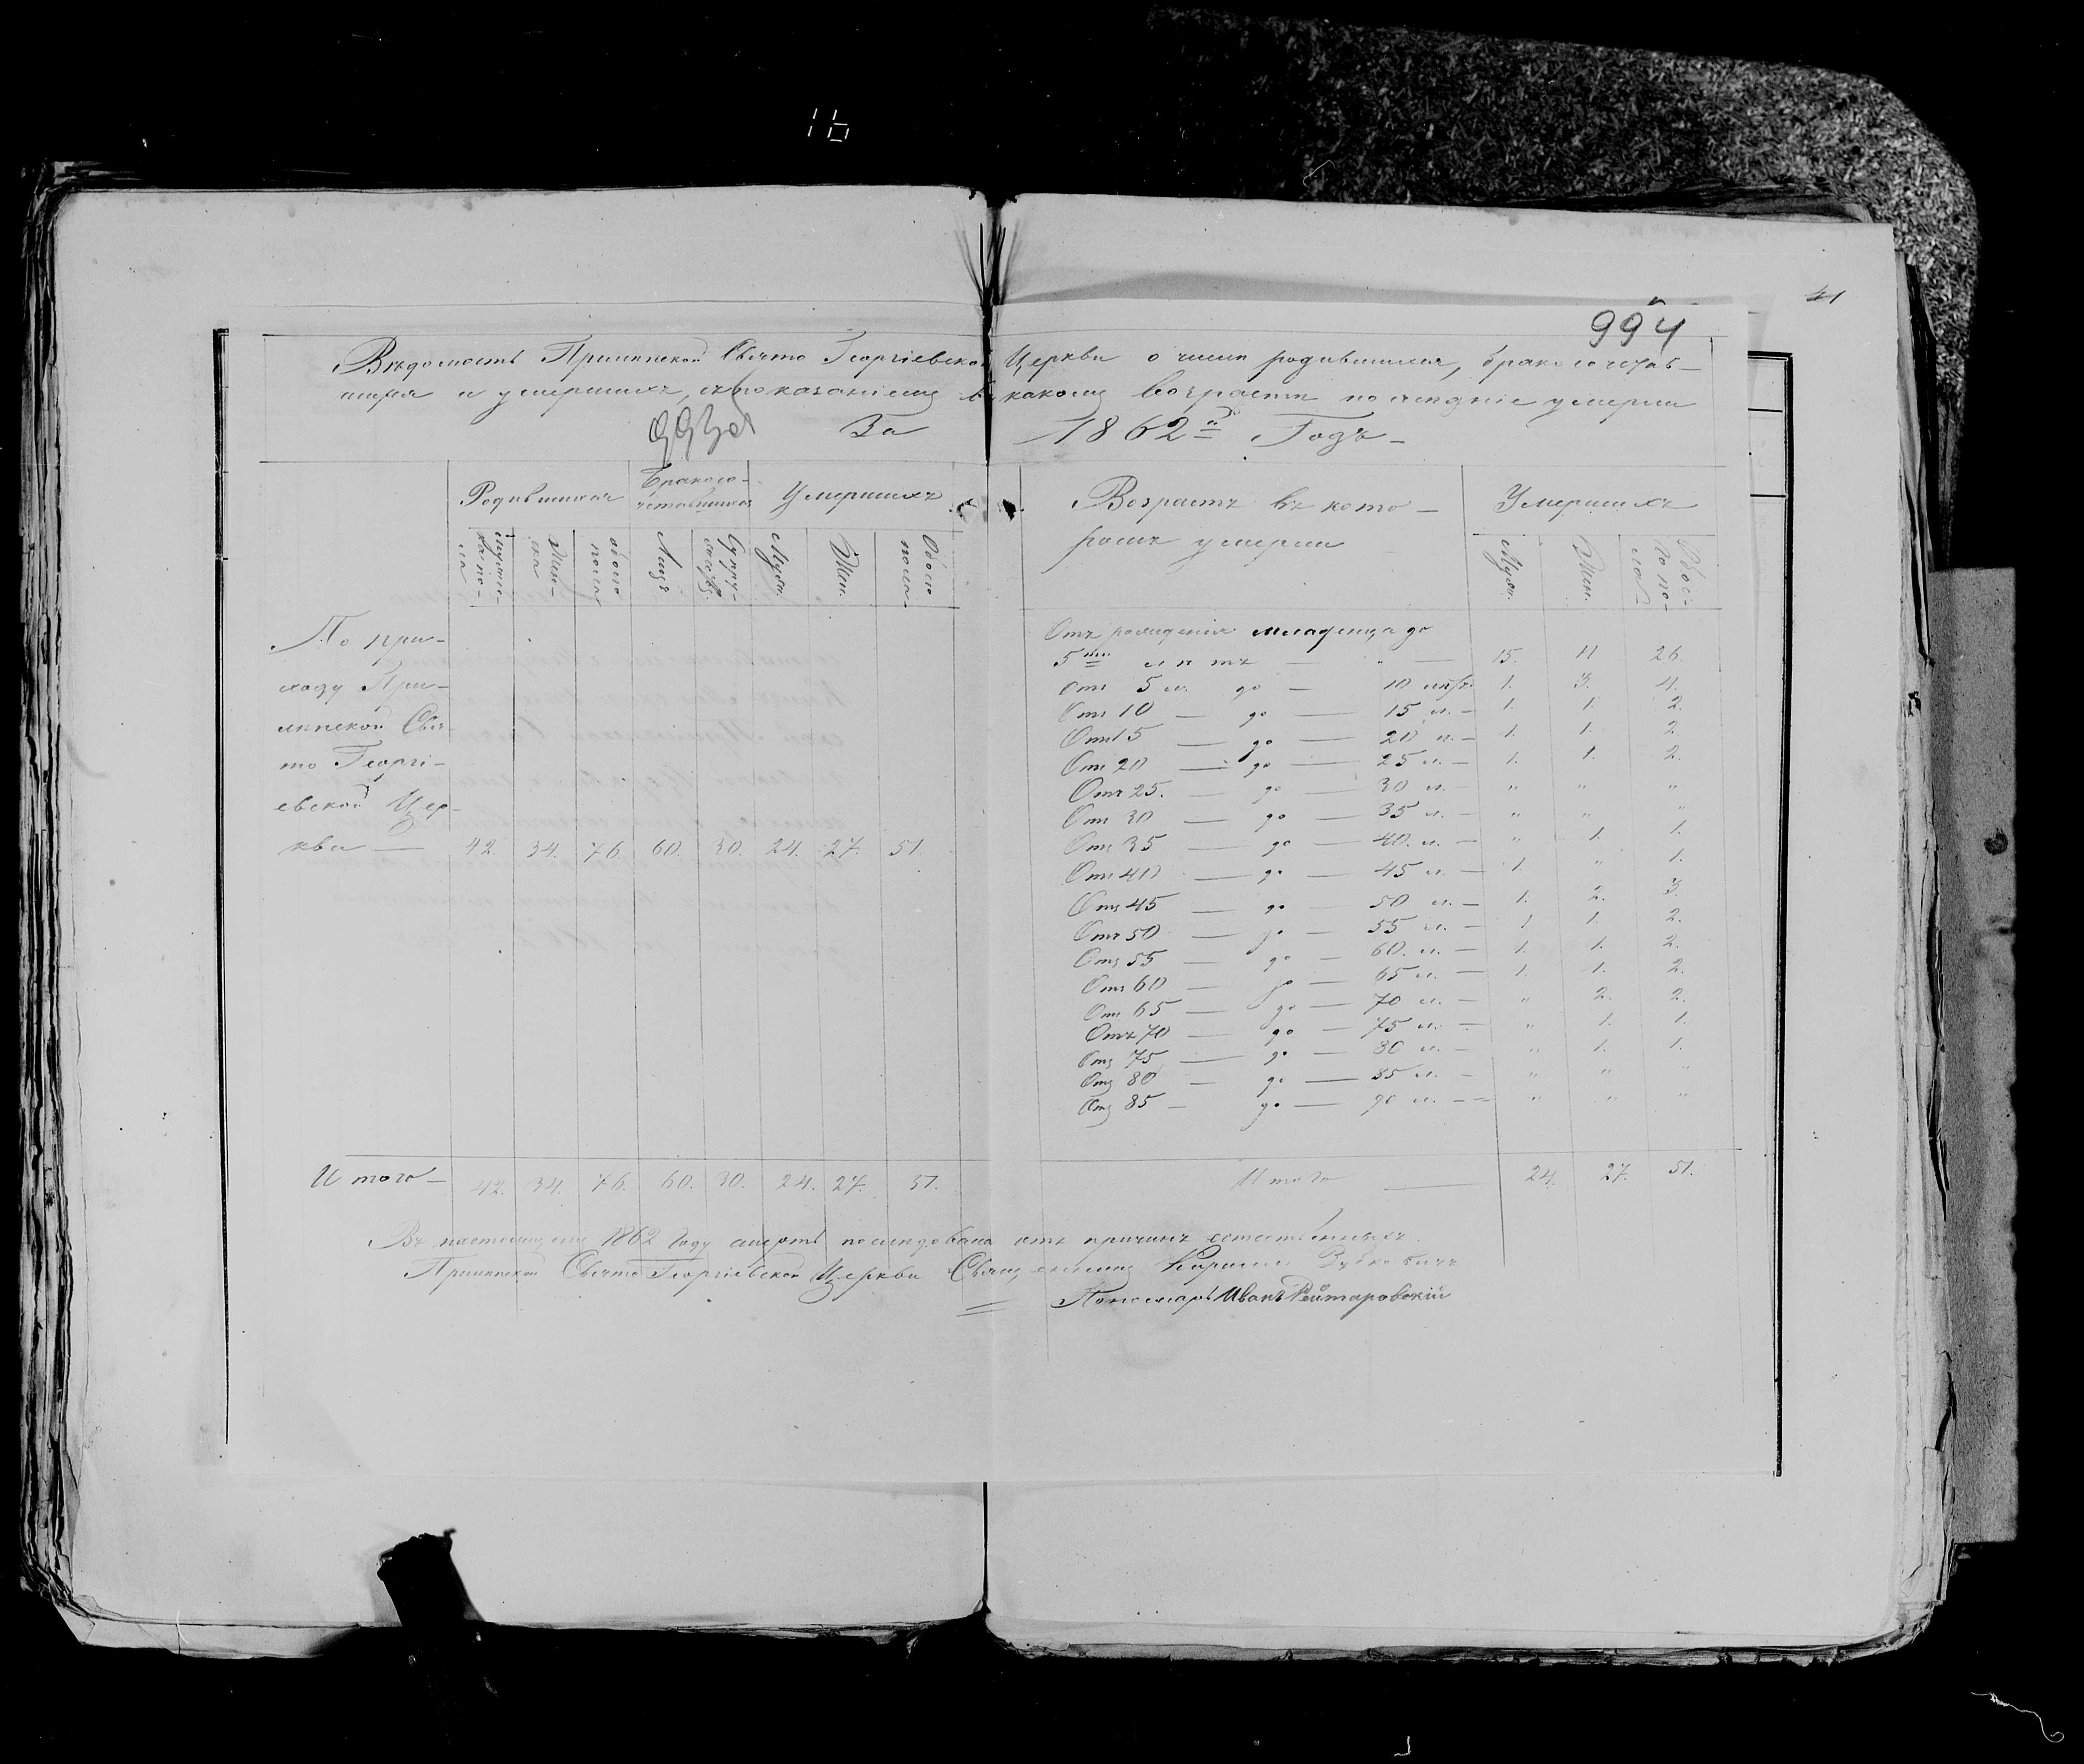 16
41
994
Вѣдомость Прилипской Свято Георгіевской Церкви о числѣ родившихся, бракосочетав-
шихся и умершихъ, съ показаніемъ въ какомъ возрастѣ послѣдніе умерли
993об За 1862й Годъ
Родившихся Бракосо- Умершихъ
четавшихся
Мужес-
ка по-
ла
Жен-
ска
обоего
пола
Лицъ
Супру-
жествъ
Муж.
Жен.
Обоего
пола
По при-
ходу При-
липской Свя-
то Георгі-
евской Цер-
кви — 42. 34. 76. 60. 30. 24. 27. 51.
Итого — 42. 34. 76. 60. 30. 24. 27. 51.
Возрастъ въ кото- Умершихъ
ромъ умерли
Муж.
Жен.
Обое-
го по-
ла
Отъ рожденія младенца до
5ти лѣтъ — 15. 11 26.
Отъ 5 л. до — 10 лѣтъ 1. 3. 4.
Отъ 10 — до — 15 л. — 1. 1. 2.
Отъ 15 — до — 20 л. — 1. 1. 2
Отъ 20 — до — 25 л. — 1. 1. 2.
Отъ 25. — до — 30 л. — " " "
Отъ 30 — до — 35 л. — " " "
Отъ 35 — до — 40. л. — " 1. 1.
Отъ 40 — до — 45 л. — 1. " 1.
Отъ 45 — до — 50 л. — 1. 2. 3.
Отъ 50 — до — 55 л. — 1 1. 2.
Отъ 55 — до — 60. л. — 1. 1. 2.
Отъ 60 — до — 65 л. — 1. 1. 2.
Отъ 65 — до — 70 л. — " 2. 2.
Отъ 70 — до — 75 л. — " 1. 1.
Отъ 75 — до — 80 л. — " 1. 1.
Отъ 80 — до — 85 л. — " " "
Отъ 85 — до — 90 л. — — " " "
Итого — 24. 27. 51.
Въ настоящемъ 1862 году смерть послѣдовала отъ причинъ естественныхъ.
Прилипской Свято Георгіевской Церкви Священникъ
Пономарь Иванъ Рейтаровскій